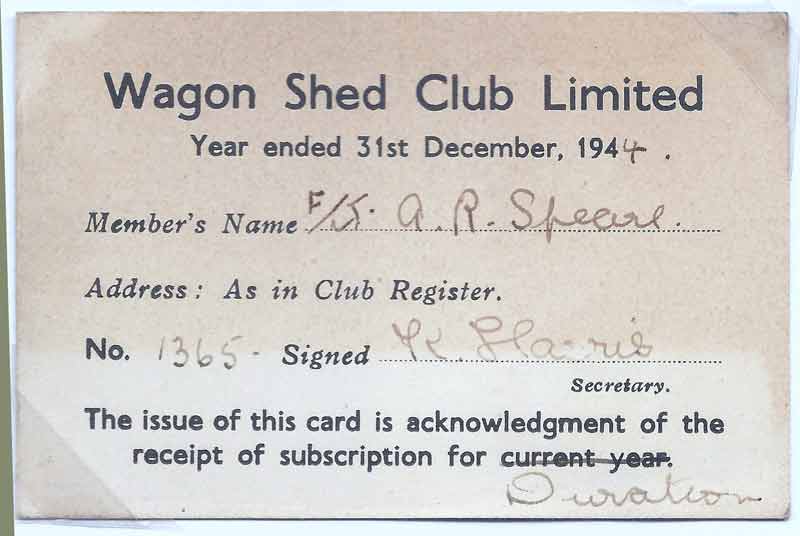 Wagon Shed Club Limited
Year ended 31st December, 1944.
Member's Name F/Lt. A. R. Spearl.
Address: As in Club Register.
No. 1365. Signed K. Harris
Secretary.
The issue of this card is acknowledgment of the
receipt of subscription for current year.
Duration